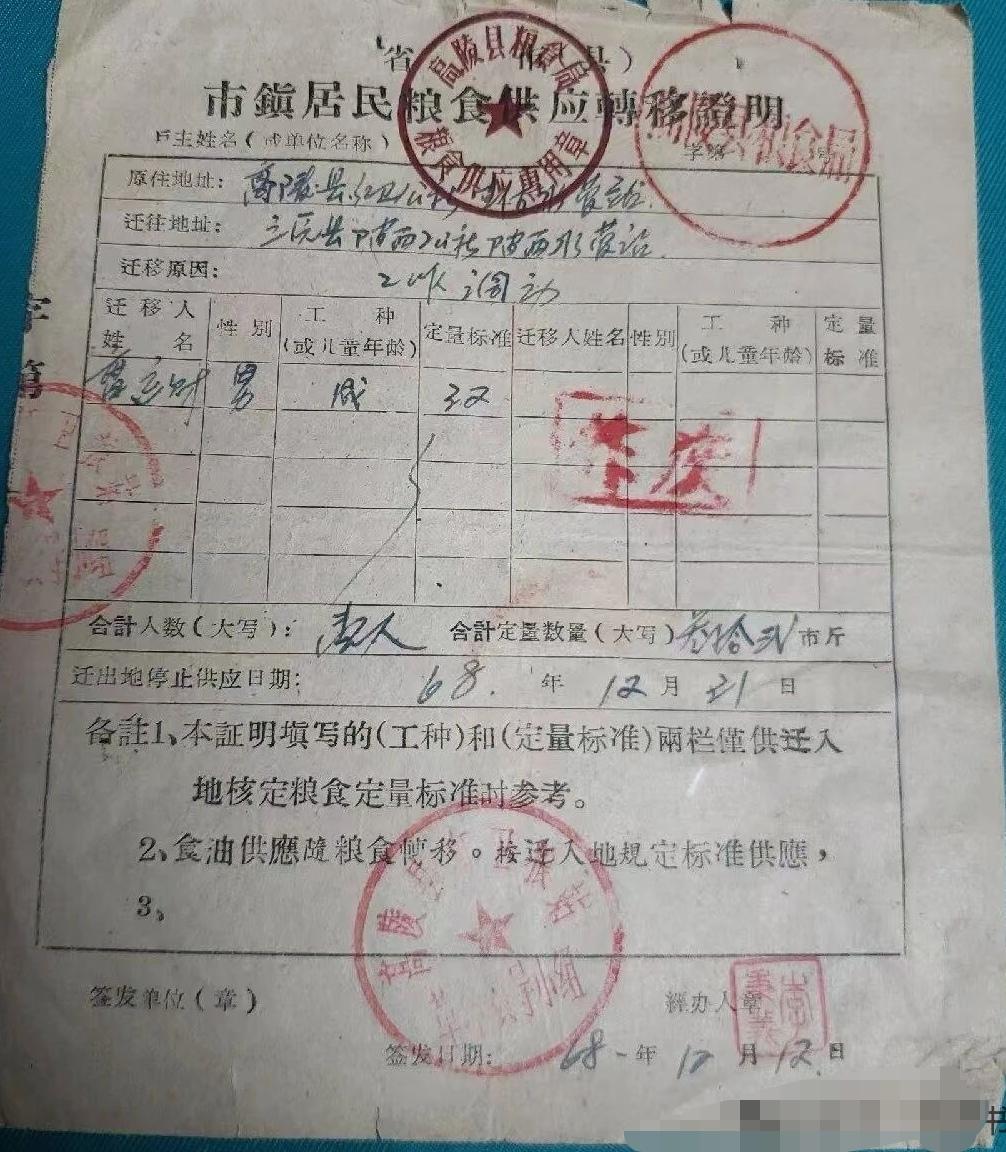 省 县)
市鎭居民粮食供应轉移證明
高陵县粮食局
粮食供应專用章
戶主姓名(或单位名称) 字第 号
原住地址: 高陵县 营站
迁往地址: 三原县陂西公社陂西 营站
迁移原因: 工作调动
迁移人姓名 性别 工种(或儿童年龄) 定量标准 迁移人姓名 性别 工种(或儿童年龄) 定量标准
男 成 32
字第
合計人数(大写): 壹人 合計定量数量(大写) 叁拾贰 市斤
迁出地停止供应日期: 68. 年 12 月 31 日
备註1、本証明填写的(工种)和(定量标准)兩栏僅供迁入
地核定粮食定量标准时参考。
2、食油供應隨粮食轉移。按迁入地规定标准供應,
3、
签发单位(章) 經办人章
签发日期: 68 年 12 月 12 日